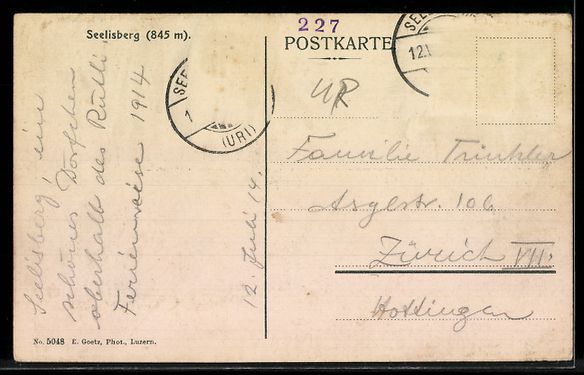 227
Seelisberg (845 m).
POSTKARTE
SEE
1
(URI)
SEEL
12.
UR
Seelisberg, ein
schönes Dörfchen
oberhalb des Rütli.
Ferienreise 1914
12. Juli 14.
Familie Trinkler
Asylstr. 106
Zürich VII.
Hottingen
No. 5048 E. Goetz, Phot., Luzern.